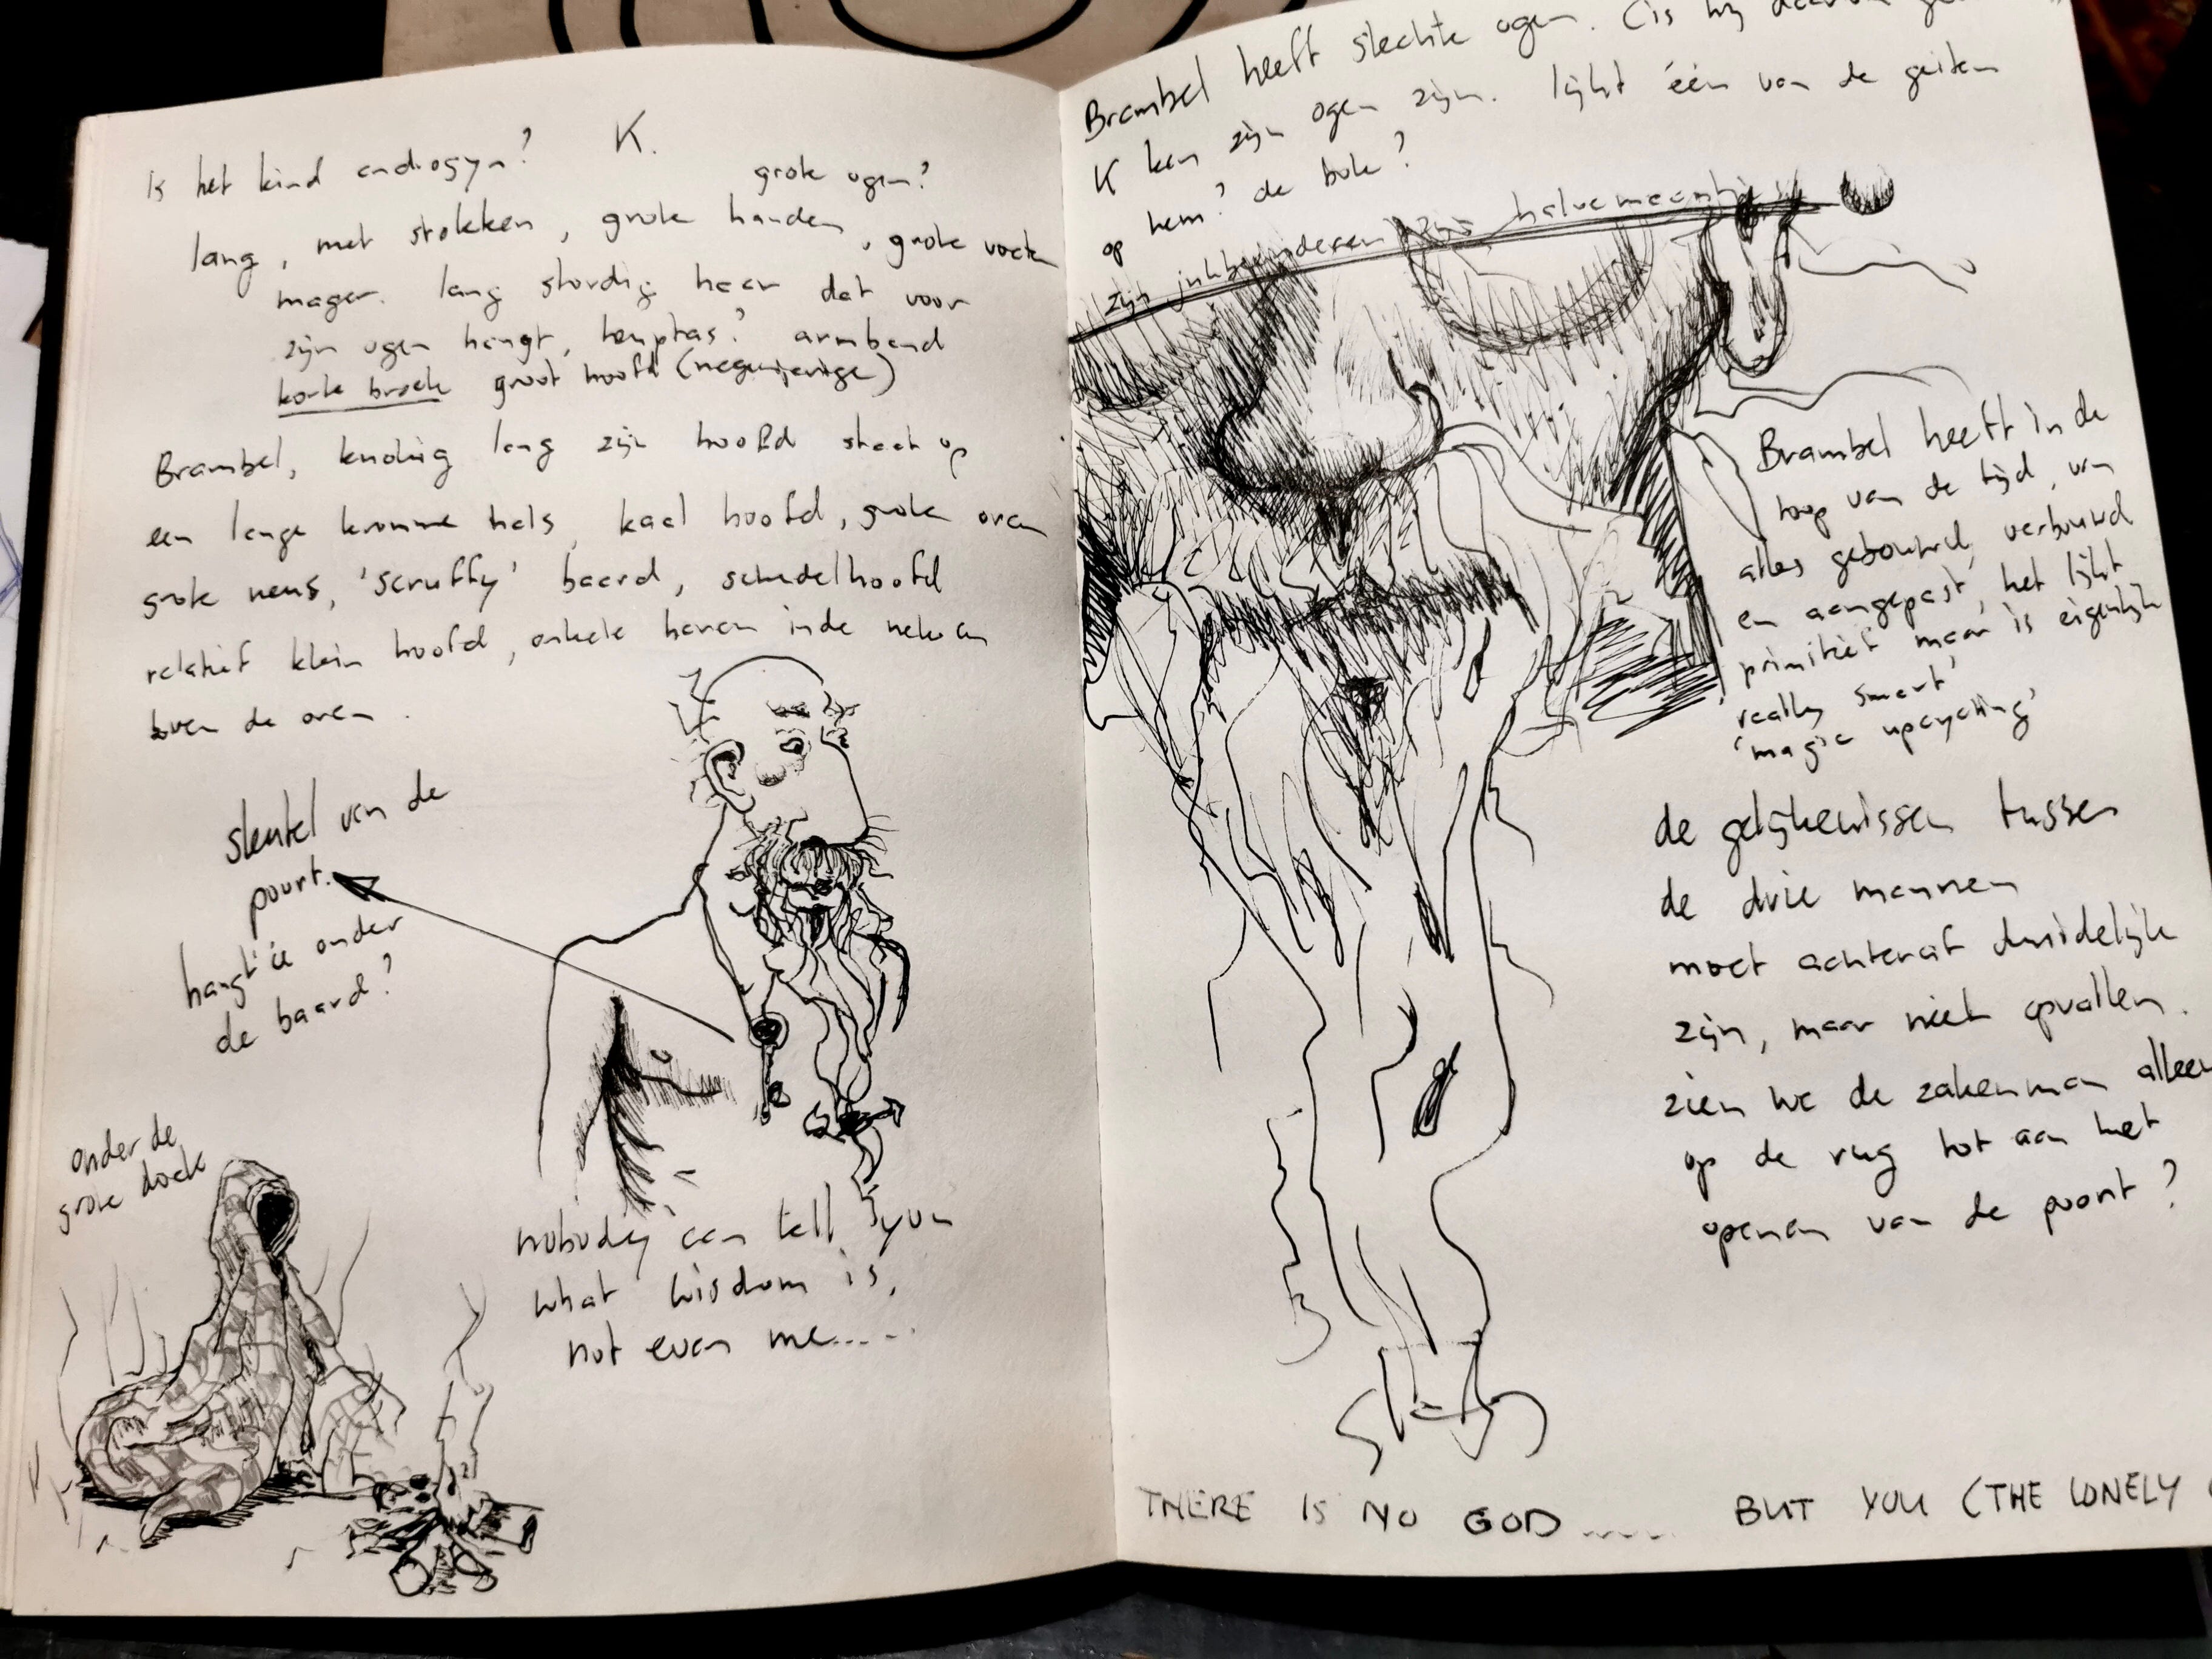 K.
is het kind androgyn?
grote ogen?
lang, met stokken, grote handen, grote voeten
mager. lang slordig haar dat voor
zijn ogen hangt, armband
korte broek groot hoofd (nieuwsgierige)
Brambel, knokig lang zijn hoofd staat op
een lange kromme hals, kaal hoofd, grote oren
grote neus, 'scruffy' baard, schedelhoofd
relatief klein hoofd, enkele haren in de nek en
boven de oren.
sleutel van de
poort.
hangt ie onder
de baard?
onder de
grote doek
nobody can tell you
what wisdom is,
not even me.....
Brambel heeft slechte ogen. (is hij daarom
K kan zijn ogen zijn. lijkt één van de geiten
op hem? de bok?
zijn halve maantje
Brambel heeft in de
loop van de tijd, van
alles gebouwd, verbouwd
en aangepast, het lijkt
primitief maar is eigenlijk
'really smart'
'magic upcycling'
de gelijkenissen tussen
de drie mannen
moet achteraf duidelijk
zijn, maar niet opvallen.
zien we de zakenman alleen
op de rug tot aan het
openen van de poort?
THERE IS NO GOD ....... BUT YOU (THE LONELY